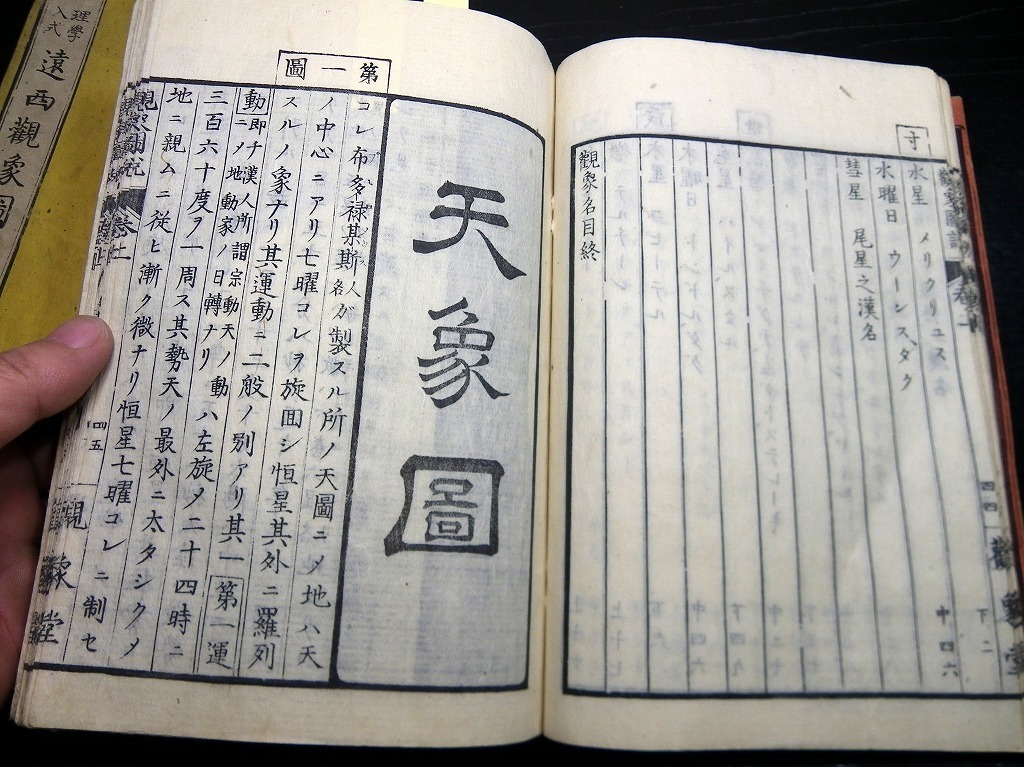 寸
水星 メリクリユス
下二
水曜日 ウーンスダク
中四六
彗星 尾星之漢名
觀象名目終
四四
觀象堂
天象圖
第一圖
コレ布多禄某斯人名ガ製スル所ノ天圖ニメ地ハ天
ノ中心ニアリ七曜コレヲ旋回シ恒星其外ニ羅列
スルノ象ナリ其運動ニ二般ノ別アリ其一第一運
動即チ漢人所謂宗動天ノ動ニノ地動家ノ日轉ナリハ左旋メ二十四時ニ
三百六十度ヲ一周ス其勢天ノ最外ニ太タシクメ
地ニ親ムニ從ヒ漸ク微ナリ恒星七曜コレニ制セ
四五
理學入式
遠西觀象圖